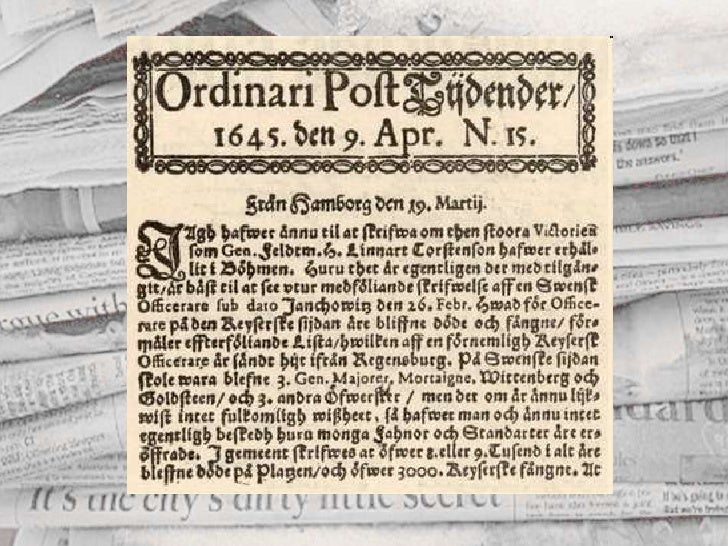 Ordinari Post Tijdender/
1645. den 9. Apr. N. 15.
Från Hamborg den 19. Martij.
JAgh hafwer ännu til at skrifwa om then stoora Victorien
som Gen. Feldtm. H. Linnart Torstenson hafwer erhål-
lit i Böhmen. Huru thet är egentligen der med tilgån-
git/är bäst til at see vtur medföliande skrifwelse aff en Swensk
Officerare sub dato Janchowitz den 26. Febr. Hwad för Office-
rare på den Keyserske sijdan äre bliffne döde och fångne/ för-
mäler effterföliande Lista/hwilken aff en förnemligh Keysersk
Officerare är sändt hijt ifrån Regensburg. På Swenske sijdan
skole wara blefne 3. Gen. Majorer, Mortaigne, Wittenberg och
Goldsteen/ och 3. andra Öfwerster / men der om är ännu lijk-
wist intet fulkomligh wißheet, så hafwer man och ännu intet
egentligh beskedh huru monga Fahnor och Standarter äre er-
öffrade. I gemeent skrifwes at öfwer 8. eller 9. Tusend i alt äre
bleffne döde på Platzen/och öfwer 3000. Keyserske fångne. At
is down so that I
the answers.'
It's the city's dirty little secret